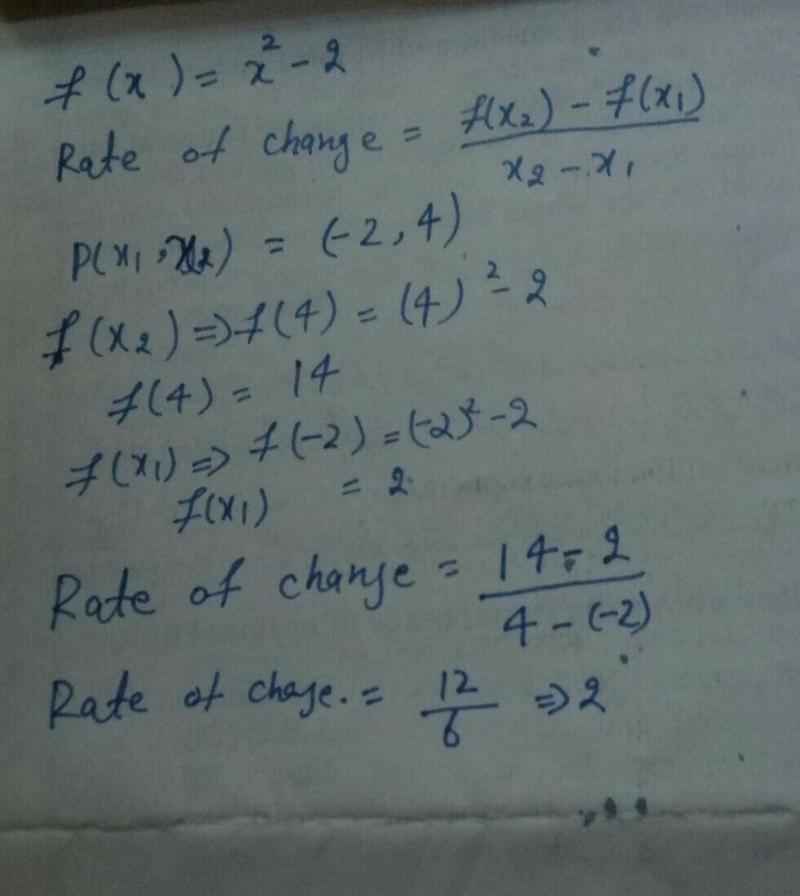 f(x) = x² - 2
Rate of change = f(x₂) - f(x₁) / x₂ - x₁
P(x₁, x₂) = (-2, 4)
f(x₂) ⇒ f(4) = (4)² - 2
f(4) = 14
f(x₁) ⇒ f(-2) = (-2)² - 2
f(x₁) = 2
Rate of change = 14 - 2 / 4 - (-2)
Rate of chage. = 12 / 6 ⇒ 2